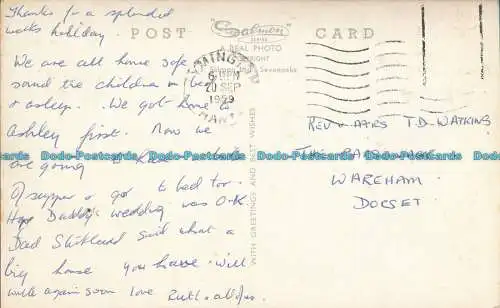 Thanks for a splendid
weeks holiday.
We are all home safe &
sound the children in bed
& asleep. We got home to
Ashley first. Now we
are going to have
of supper & go to bed too.
Hope Daddy's wedding was O.K.
Dad said what a
big house you have. Will
write again soon love
POST CARD
Salmon
SERIES
A REAL PHOTO
Sevenoaks
6 PM
20 SEP
1959
HANTS
WITH GREETINGS AND BEST WISHES
REV & MRS T.D. WATKINS
THE
WAREHAM
DORSET
Dodo-Postcards Dodo-Postcards Dodo-Postcards Dodo-Postcards Dodo-Postcards
Dodo-Postcards Dodo-Postcards Dodo-Postcards Dodo-Postcards Dodo-Postcards